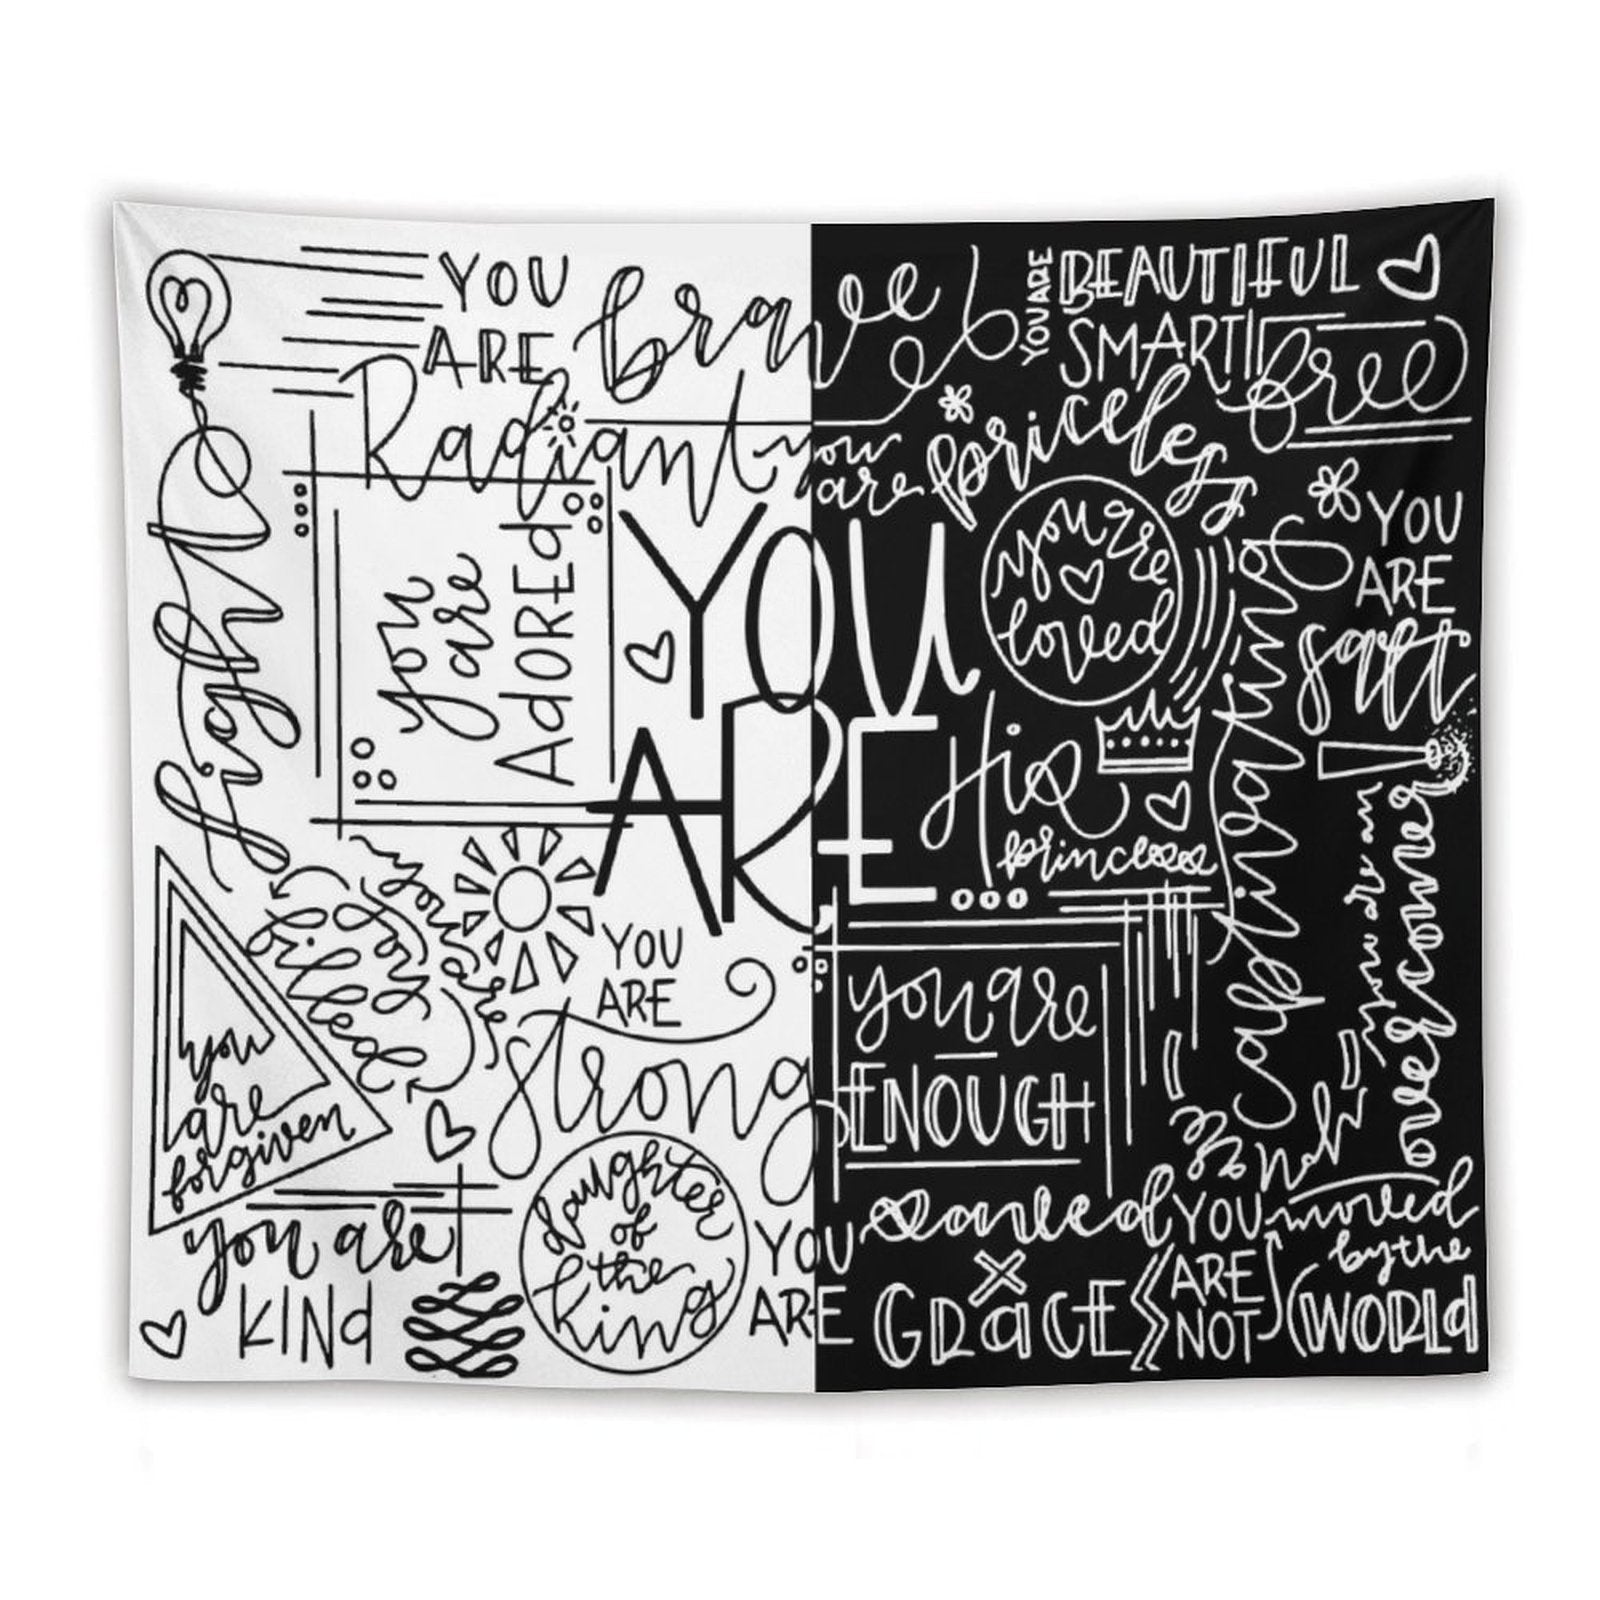 YOU
ARE
brave
Radiant
Light
you
are
ADORED
YOU
ARE
you're
joy
filled
you
are
forgiven
YOU
ARE
strong
you are
KINd
daughter
of
the
king
YOU ARE
BEAUTIFUL
SMART
free
you
are
priceless
you're
loved
His
princess
captivating
YOU
ARE
salt
you are an
overcomer
you are
ENOUGH
YOU
ARE
saved
x
GRaCE
YOU
ARE
NOT
moved
by the
WORLd